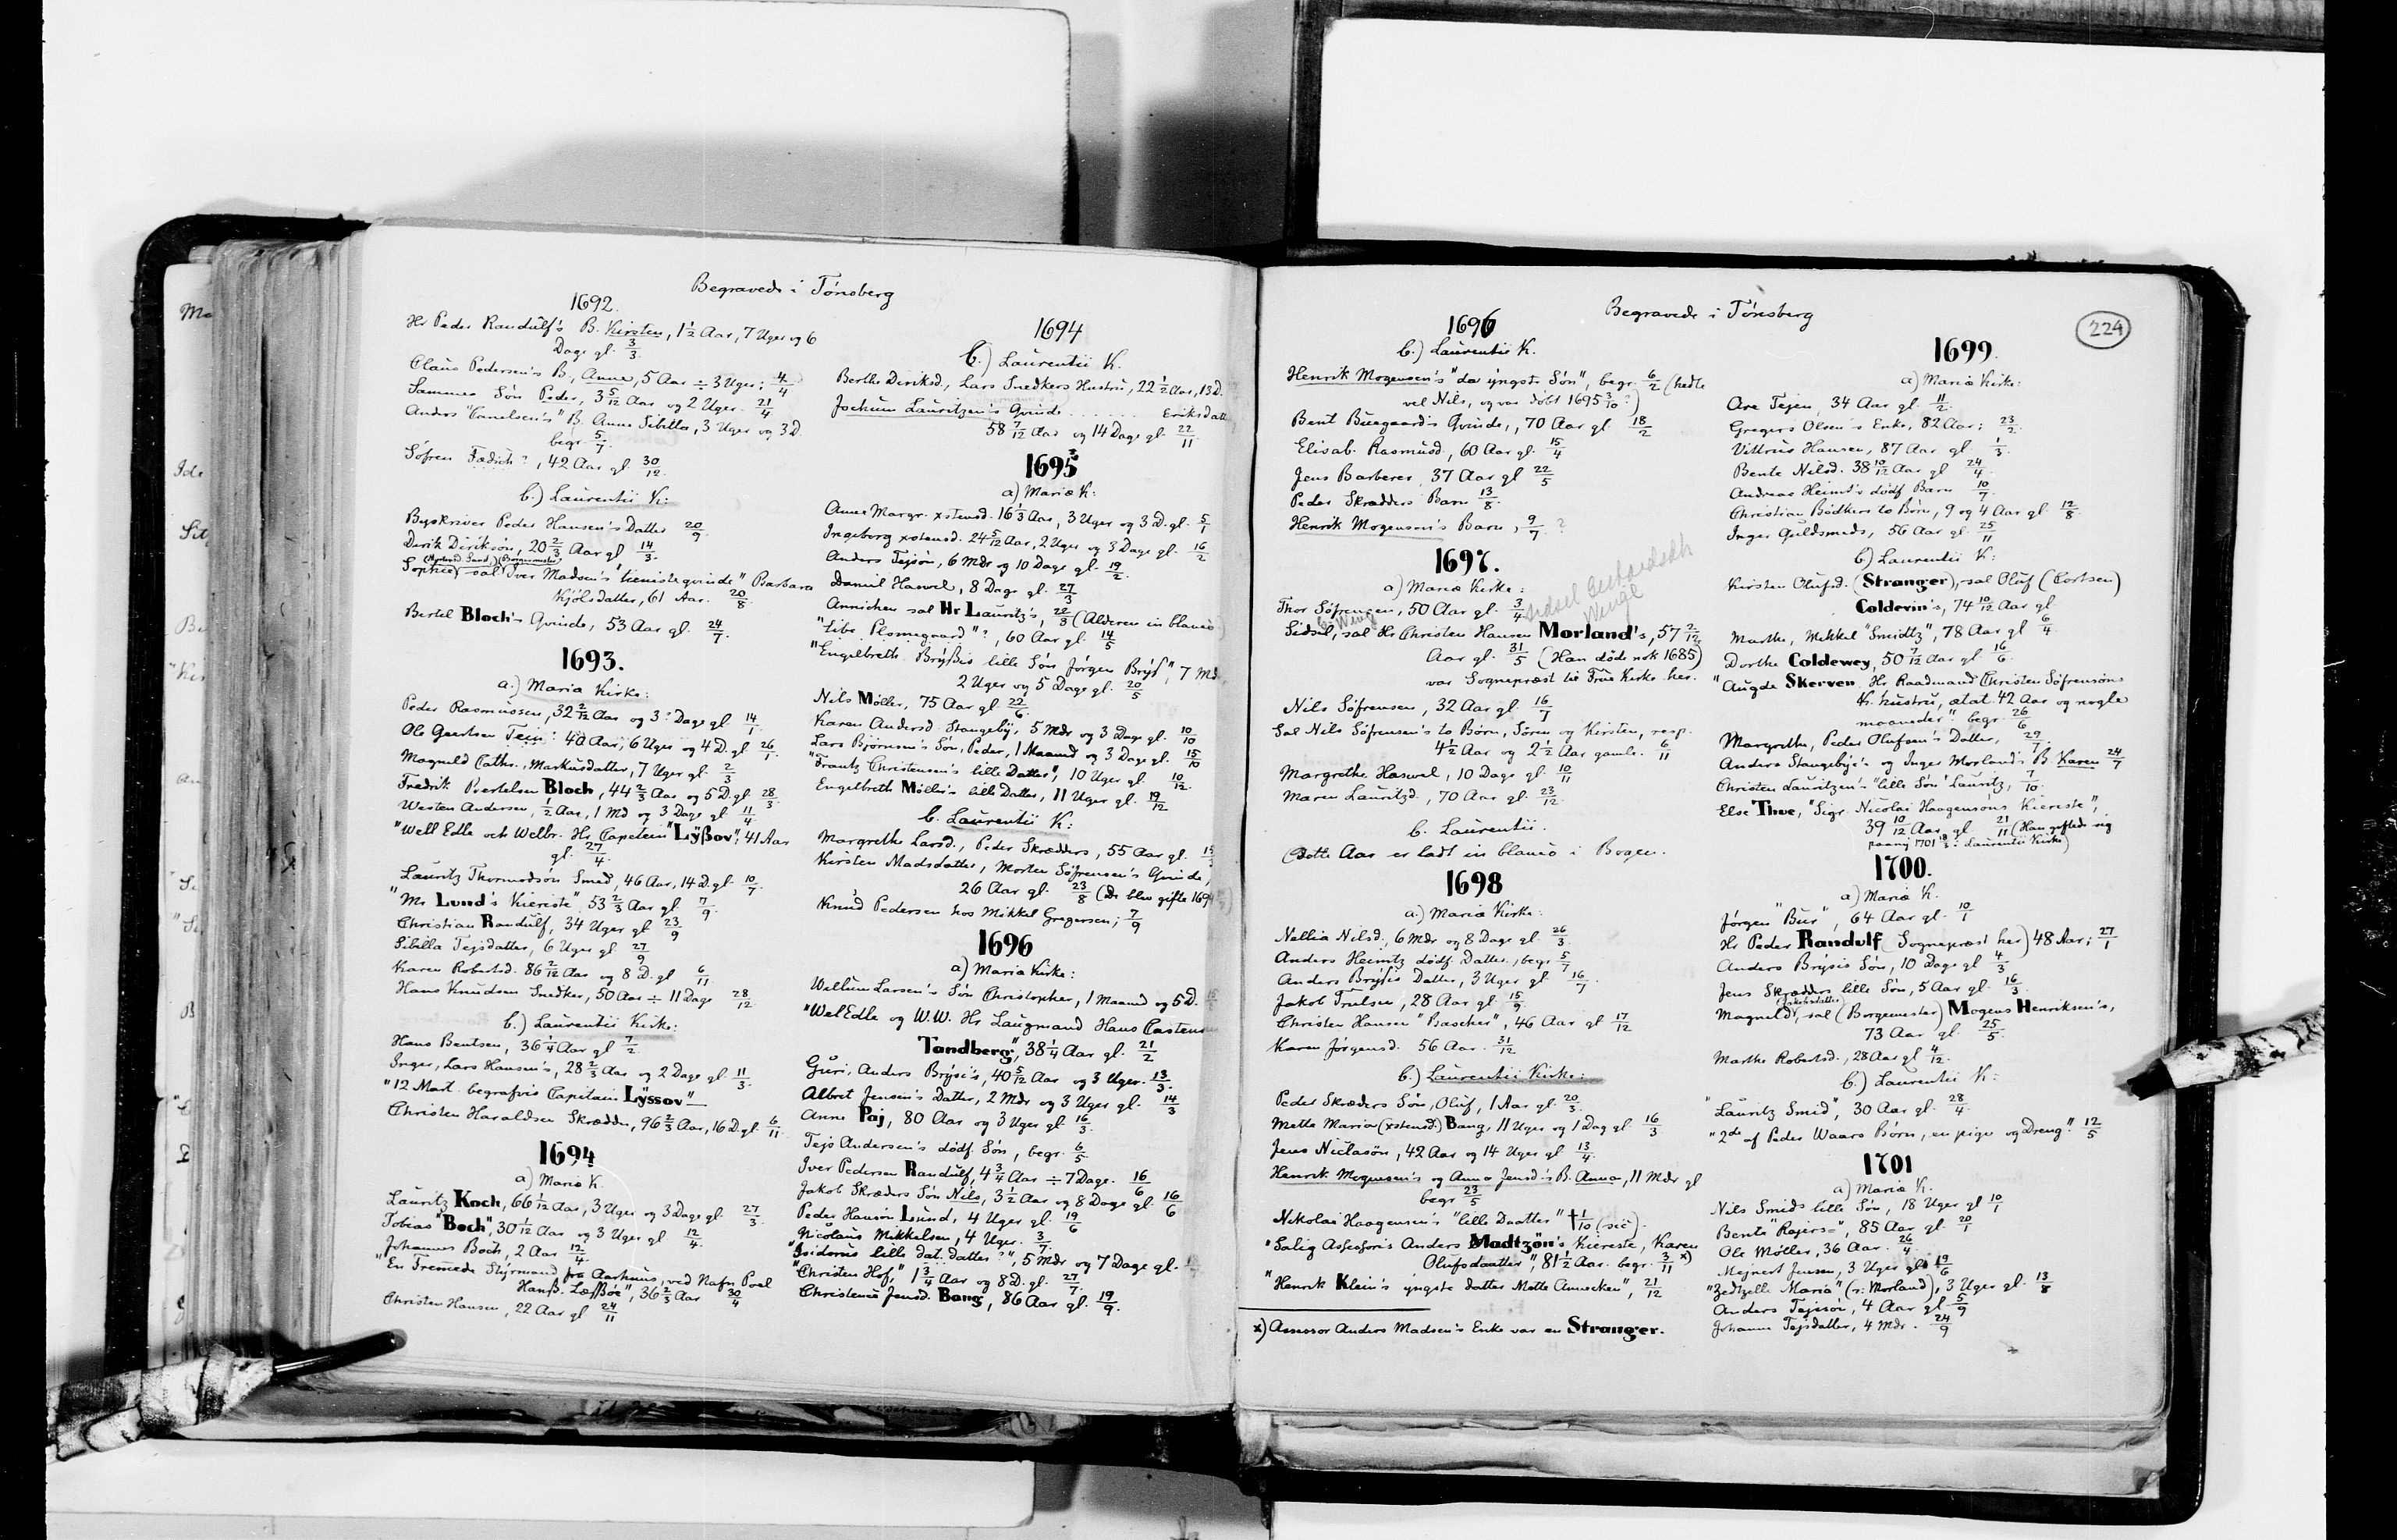 Begravede i Tönsberg
1692.
Hr Peder Randulf's B. Kirsten, 1½ Aar, 7 Uger og 6
Dage gl. 3/3.
Claus Pedersen's B., Anne, 5 Aar ÷ 3 Uger; 4/4
Sammes Søn Peder, 3 5/12 Aar og 2 Uger. 21/4
Anders "Cornelsen's" B. Anne Sibilla, 3 Uger og 3 D.
begr. 5/7.
Söfren Fædisch?, 42 Aar gl. 30/12.
b.) Laurentii K:
Byskriver Peder Hansen's Datter 20/9.
Dirik Diriksön, 20 2/3 Aar gl 14/3.
Sophie, sal Iver Madsen's "tienistequinde" Barbara
Kjölsdatter, 61 Aar. 20/8.
Bertel Bloch's Qvinde, 53 Aar gl. 24/7.
1693.
a.) Maria Kirke:
Peder Rasmussen, 32 2/12 Aar og 3? Dage gl 14/1.
Ole Gaertsen Teen? 40 Aar, 6 Uger og 4 D. gl 26/1.
Magneld Cathr., Markusdatter, 7 Uger gl. 2/3
Fredrik Bertelsen Bloch, 44 2/3 Aar og 5 D. gl 28/3.
Westen Andersen, ½ Aar, 1 Md og 3 Dage gl 11/4
"Well Edle och Welbr. Hr Capetein "Lÿßov", 41 Aar
gl. 27/4.
Lauritz Thormodsön Smed, 46 Aar, 14 D. gl. 10/7.
"Mr Lund's Kiereste" 53 2/3 Aar gl 7/9.
Christian Randulf, 34 Uger gl 23/9
Sibilla Tejsdatter, 6 Uger gl 27/9
Karen Robertsd. 86 2/12 Aar og 8 D. gl 6/11
Hans Knudsen Snedker, 50 Aar ÷ 11 Dage 28/12.
b.) Laurentii Kirke:
Hans Bentsen, 36¼ Aar gl 7/2.
Inger, Lars Hansen's, 28 2/3 Aar og 2 Dage gl 11/3.
"12 Mart. begrafvis Capitain Lÿssov"
Christen Haraldsen Skrædder, 96 2/3 Aar, 16 D. gl. 6/11
1694
a) Maria K.
Lauritz Koch, 66 1/12 Aar, 3 Uger og 3 Dage gl. 27/3.
Tobias "Boch", 30 1/12 Aar og 3 Uger gl 12/4.
Johannes Boch, 2 Aar 12/4.
"En Fremmede Stÿrmand fra Aarhuus, ved Nafn Poel
Hanß. Læssöe", 36 2/3 Aar 30/4
Christen Hansen, 22 Aar gl 24/11
1694
b.) Laurentii K.
Berthe Diriksd., Lars Snedkers Hustru, 22½ Aar, 13 D.
Jochum Lauritzen's Qvinde . . . . . . Eriksdatt
58 7/12 Aar og 14 Dage gl. 22/11
1695
a) Mariæ K:
Anne Margr. xstensd. 16 1/3 Aar, 3 Uger og 3 D. gl. 5/1
Ingeborg xstensd. 24 5/12 Aar, 2 Uger og 3 Dage gl. 16/2
Anders Tejsön, 6 Mdr og 10 Dage gl. 19/2.
Daniel Haswel, 8 Dage gl. 27/3
Annichen sal Hr Lauritz's, 22/8 (Alderen in blanco
"Libe Plomegaard"?, 60 Aar gl. 14/5
"Engelbreth Brÿßis lille Sön Jörgen Brÿß", 7 Md.,
2 Uger og 5 Dage gl. 20/5
Nils Möller, 75 Aar gl. 22/6.
Karen Andersd. Stangeby, 5 Mdr og 3 Dage gl. 10/10
Lars Björnsen's Sön, Peder, 1 Maaned og 3 Dage gl. 15/10
"Frantz Christensen's lille Datter", 10 Uger gl. 10/12.
Engelbreth Möller's lille Datter, 11 Uger gl. 19/12
b. Laurentii K:
Margrethe Larsd., Peder Skrædders, 55 Aar gl.
Kirsten Madsdatter, Morten Söfrensen's Qvinde,
26 Aar gl. 23/8 (de blev gifte 169
Knud Pedersen hos Mikkel Gregersen; 7/9
1696
a) Maria Kirke:
Wellum Larsen's Sön Christopher, 1 Maaned og 5 D.
"WelEdle og W.W. Hr Laugmand Hans Carstens
Tandberg", 38¼ Aar gl. 21/2
Guri, Anders Brÿsi's, 40 5/12 Aar og 3 Uger. 13/3.
Albret Jensen's Datter, 2 Mdr og 3 Uger gl. 14/3
Anne Paj, 80 Aar og 3 Uger gl 16/3.
Tejs Andersen's dödf. Sön, begr. 6/5.
Iver Pedersen Randulf, 4¾ Aar ÷ 7 Dage. 16/6
Jakob Skræders Sön Nils, 3½ Aar og 8 Dage gl. 16/6
Peder Hansön Lund, 4 Uger gl. 19/6
Nicolaus Mikkelsen, 4 Uger. 3/7.
"Isidorus lille dat. datter?", 5 Mdr og 7 Dage gl.
"Christen Hof," 1¾ Aar og 8 D. gl. 27/7.
Christence Jensd. Bang, 86 Aar gl. 19/9.
Begravede i Tönsberg
224
1696
b.) Laurentii K.
Henrik Mogensen's "dær ÿngste Sön", begr. 6/2 (hedte
vel Nils, og var döbt 1695 3/10 ?)
Bent Buegaard's Qvinde, 70 Aar gl 18/2
Elisab. Rasmusd., 60 Aar gl. 15/4
Jens Barberer, 37 Aar gl 22/5
Peder Skrædders Barn 13/8.
Henrik Mogensen's Barn, 9/7 ?
1697.
a) Mariæ Kirke:
Thor Söfrensen, 50 Aar gl. 3/4
Sidsel Gerhardsdtr
Wengel
Sidsel, sal Hr Christen Hansen Morland's, 57 2/12
Aar gl. 31/5 (Han döde nok 1685)
var Sognepræst til Frue Kirke her.
Nils Söfrensen, 32 Aar gl. 16/7
Sal Nils Söfrensen's to Börn, Sören og Kirsten, resp.
4½ Aar og 2½ Aar gamle. 6/11
Margrethe Haswel, 10 Dage gl. 10/11
Maren Lauritzd., 70 Aar gl 23/12.
b. Laurentii.
(Dette Aar er ladt in blanco i Bogen.
1698
a.) Mariæ Kirke:
Nellia Nilsd., 6 Mdr og 8 Dage gl 26/3.
Anders Heinitz dödf. Datter, begr 5/7
Anders Brÿsis Datter, 3 Uger gl 16/7.
Jakob Trulsen, 28 Aar gl. 15/9
Christen Hansen "Bascher", 46 Aar gl 17/12
Karen Jörgensd. 56 Aar. 31/12
b.) Laurentii Kirke:
Peder Skræders Sön, Oluf, 1 Aar gl. 20/3.
Mette Maria (xstensd.) Bang, 11 Uger og 1 Dag gl 16/3
Jens Niclasön, 42 Aar og 14 Uger gl 13/4.
Henrik Mogensen's og Anna Jensd's B. Anna, 11 Mdr gl
begr. 23/5
Nikolai Haagensen's "lille Daatter" † 1/10 (sic).
"Salig Assessoris Anders Madtzön's Kiereste, Karen
Olufsdaatter", 81½ Aar. begr. 3/11 x)
"Henrik Klein's ÿngste datter Mette Anneken", 21/12
x) Assessor Anders Madsen's Enke var en Stranger.
1699.
a) Mariæ Kirke:
Are Tejen, 34 Aar gl. 11/2.
Gregers Olsen's Enke, 82 Aar; 23/2.
Vittrus Hansen, 87 Aar gl. 1/3.
Bente Nilsd. 38 10/12 Aar gl 24/4.
Andreas Heinid's dödf Barn 10/7.
Christian Bödkers to Börn, 9 og 4 Aar gl. 12/8.
Inger Guldsmeds, 56 Aar gl. 25/11
b) Laurentii K:
Kirsten Olufsd. (Stranger), sal Oluf (Cortsen)
Coldevin's, 74 10/12 Aar gl
Marthe, Mikkel "Smidtz", 78 Aar gl 6/4
Dorthe Coldewey, 50 7/12 Aar gl 16/6.
"Augde Skerven, Hr Raadmand Christen Söfrensöns
K. hustru, ætat. 42 Aar og nogle
maaneder" begr. 26/6.
Margrethe, Peder Olufsen's Datter, 29/7.
Anders Stangeby's og Inger Morland's B. Karen 24/7
Christen Lauritzen's "lille Sön" Lauritz, 7/10.
Else Thue, "Sigr. Nicolai Haagensöns Kiereste",
39 10/12 Aar gl 21/11 (Han giftede sig
paany 1701 i Laurentii Kirke)
1700.
a) Mariæ K.
Jörgen "Bur", 64 Aar gl. 10/1
Hr Peder Randulf (Sognepræst her) 48 Aar; 27/1
Anders Brÿsis Sön, 10 Dage gl 4/3
Jens Skrædders lille Sön, 5 Aar gl. 16/3.
Magneld (Jakobsdatter), sal (Borgemester) Mogens Henriksen's,
73 Aar gl. 25/5.
Marthe Robertsd., 28 Aar gl 4/12.
b.) Laurentii K:
"Lauritz Smid", 30 Aar gl. 28/4.
"2de af Peder Waars Börn, en pige og Dreng". 12/5
1701
a) Mariæ K.
Nils Smids lille Sön, 18 Uger gl 10/1
Bente "Rejers", 85 Aar gl. 20/1
Ole Möller, 36 Aar. 26/4.
Mejnert Jensen, 3 Uger gl 19/6
"Zedtzelle Maria" (ɔ: Morland), 3 Uger gl. 13/8
Anders Tejssön, 4 Aar gl 5/9
Johanne Tejsdatter, 4 Mdr. 24/9